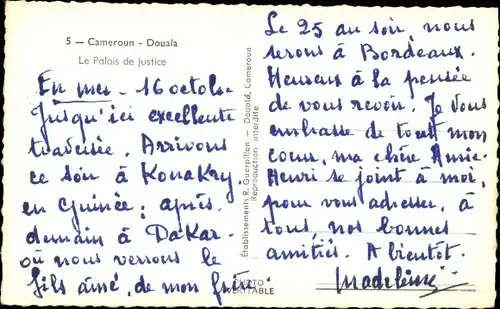 5 — Cameroun - Douala
Le Palais de Justice
En mer - 16 octob.
Jusqu'ici excellente
traversée. Arrivons
ce soir à Konakry,
en Guinée ; après-
demain à Dakar
où nous verrons le
fils aîné, de mon frère.
Le 25 au soir, nous
serons à Bordeaux.
Heureux à la pensée
de vous revoir. Je vous
embrasse de tout mon
cœur, ma chère Amie.
Henri se joint à moi,
pour vous adresser, à
tous, nos bonnes
amitiés. A bientôt.
Madeleine
Établissements R. Guerpillon - Douala, Cameroun
Reproduction interdite
PHOTO
VÉRITABLE